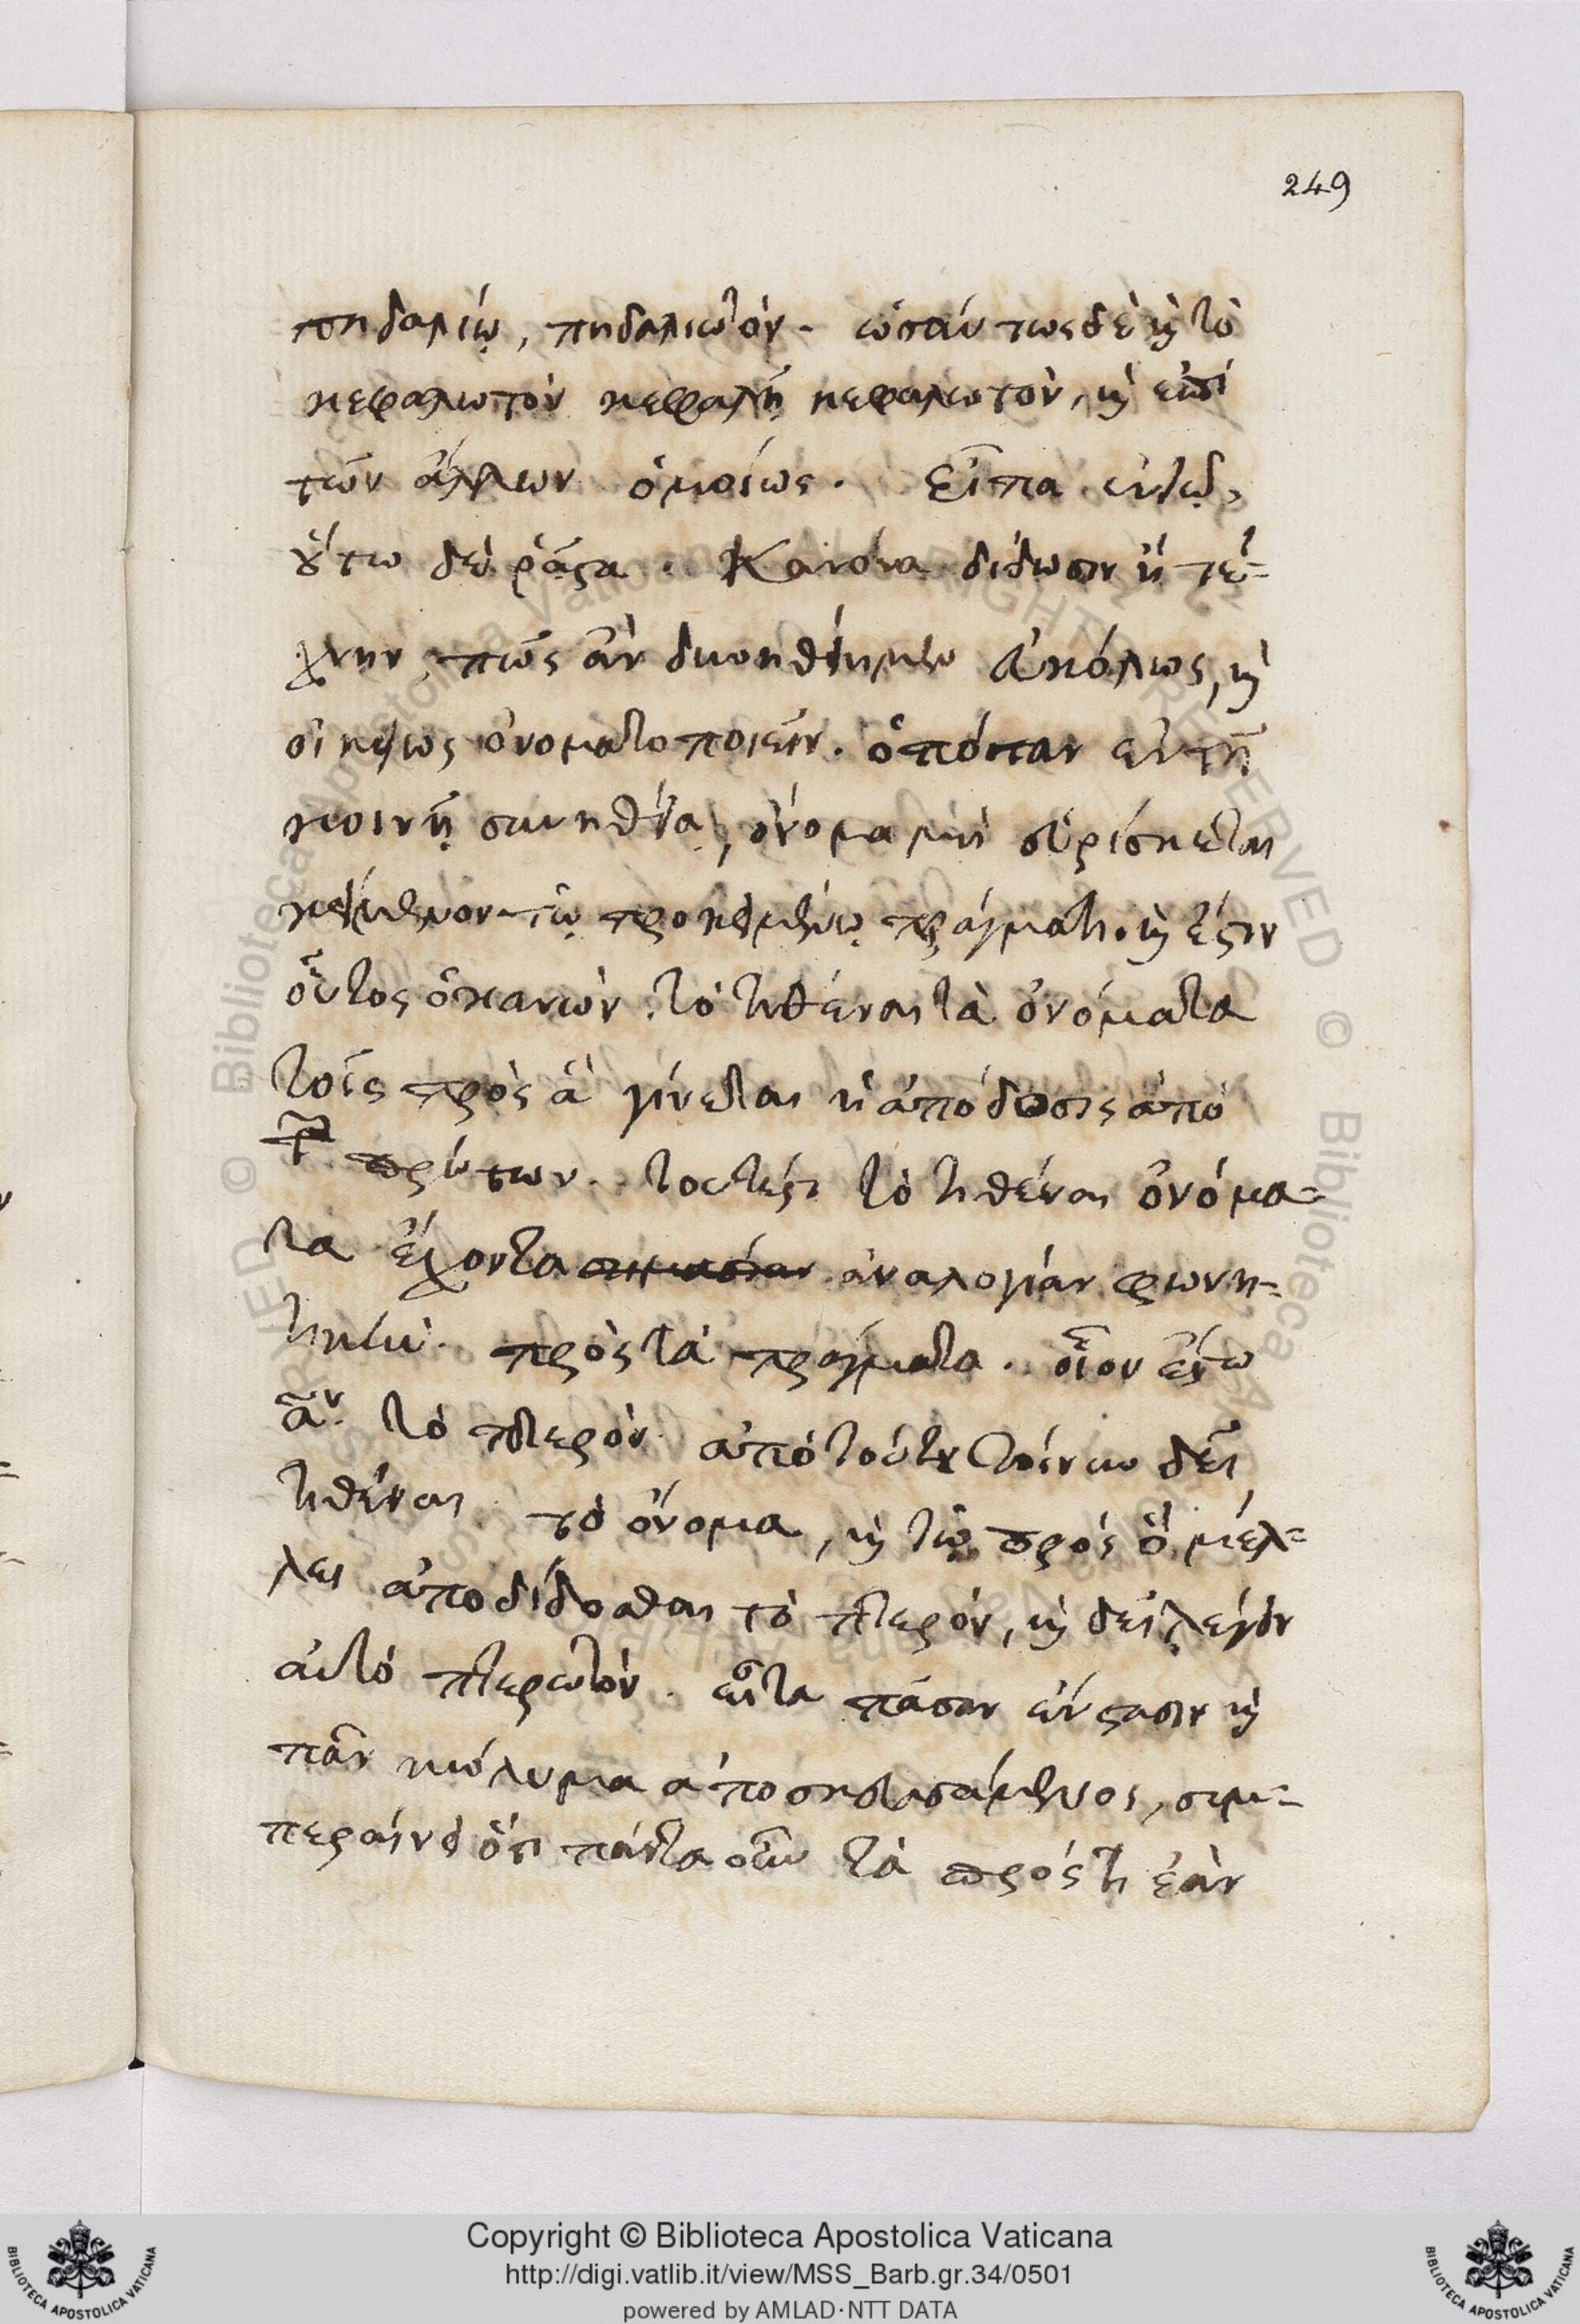 249
πηδαλίῳ, πηδαλιωτόν. ὡσαύτως δὲ ϗ τὸ
κεφαλωτὸν κεφαλῇ κεφαλωτὸν, ϗ ἐπὶ
τῶν ἄλλων ὁμοίως. Εἶπα
ȣ̔́τω δὲ ῥᾷϛα. Κανόνα δίδωσιν ἢ τέ-
χνην, πῶς ἂν δυνηθείημεν εὐκόλως, ϗ
οἰκείως ὀνοματοποιεῖν. ὁπόταν ἐν τῇ
κοινῇ συνηθείᾳ, ὄνομα μὴ εὑρίσκεται
κείμενον τῷ προκειμένῳ πράγματι. ϗ ἔϛιν
οὗτος ὁ κανὼν. τὸ τιθέναι τὰ ὀνόματα
τοῖς πρὸς ἃ γίνεται ἡ ἀπόδοσις ἀπὸ
τῶν πρώτων. τουτέϛι τὸ τιθέναι ὀνόμα-
τα ἔχοντα ἀναλογίαν φωνη-
τικὴν πρὸς τὰ πράγματα. οἷον ἔϛω
ἂν τὸ πτερὸν ἀπὸ τούτȣ τοίνυν δεῖ
τιθέναι τὸ ὄνομα, ϗ τῷ πρὸς ὃ μέλ-
λει ἀποδίδοσθαι τὸ πτερόν, ϗ δεῖ λέγειν
αὐτὸ πτερωτόν. εἶτα πᾶσαν ἔνϛασιν ϗ
πᾶν κώλυμα ἀποσκευασάμενος, συμ-
περαίνει ὅτι πάντα οὖν τὰ πρός τι ἐὰν
Copyright © Biblioteca Apostolica Vaticana
http://digi.vatlib.it/view/MSS_Barb.gr.34/0501
powered by AMLAD·NTT DATA